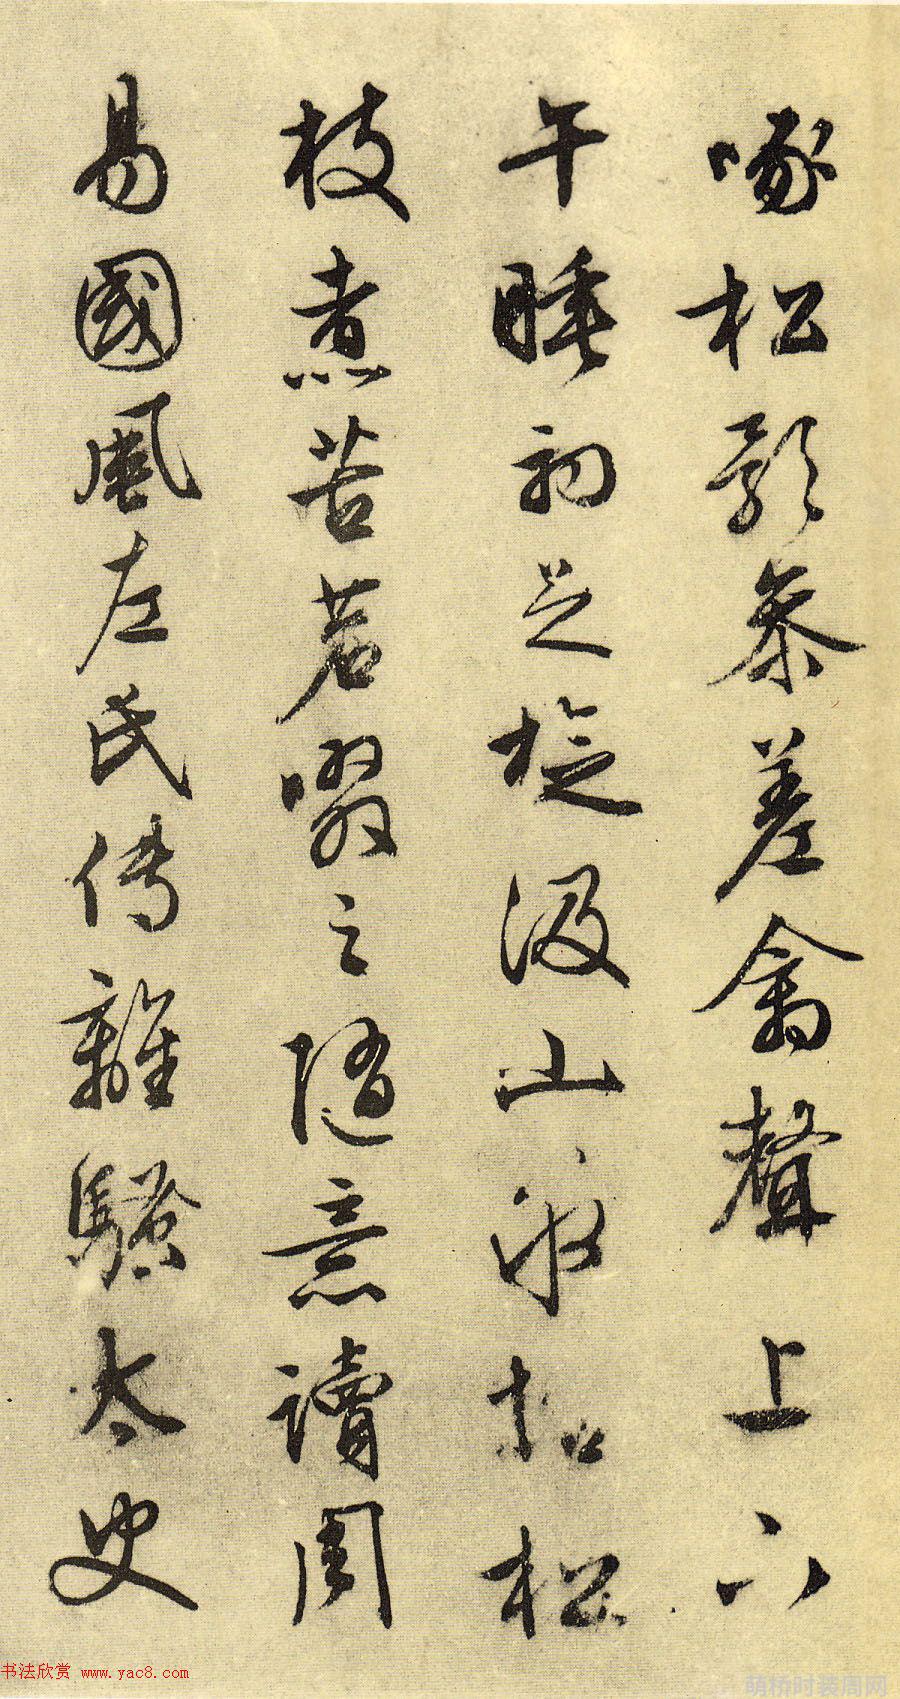 啄松影參差禽聲上下
午睡初足旋汲山泉拾松
枝煮苦茗啜之隨意讀周
易國風左氏傳離騷太史
书法欣赏 www.yac8.com
时装周网